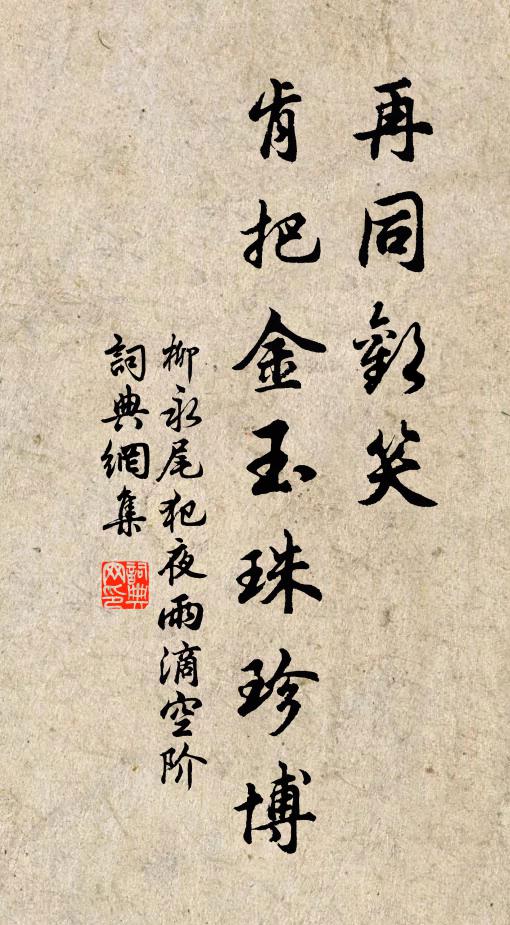 再同歡笑
肯把金玉珠珍博
柳永尾犯夜雨滴空阶
詞典網集
詞典网印